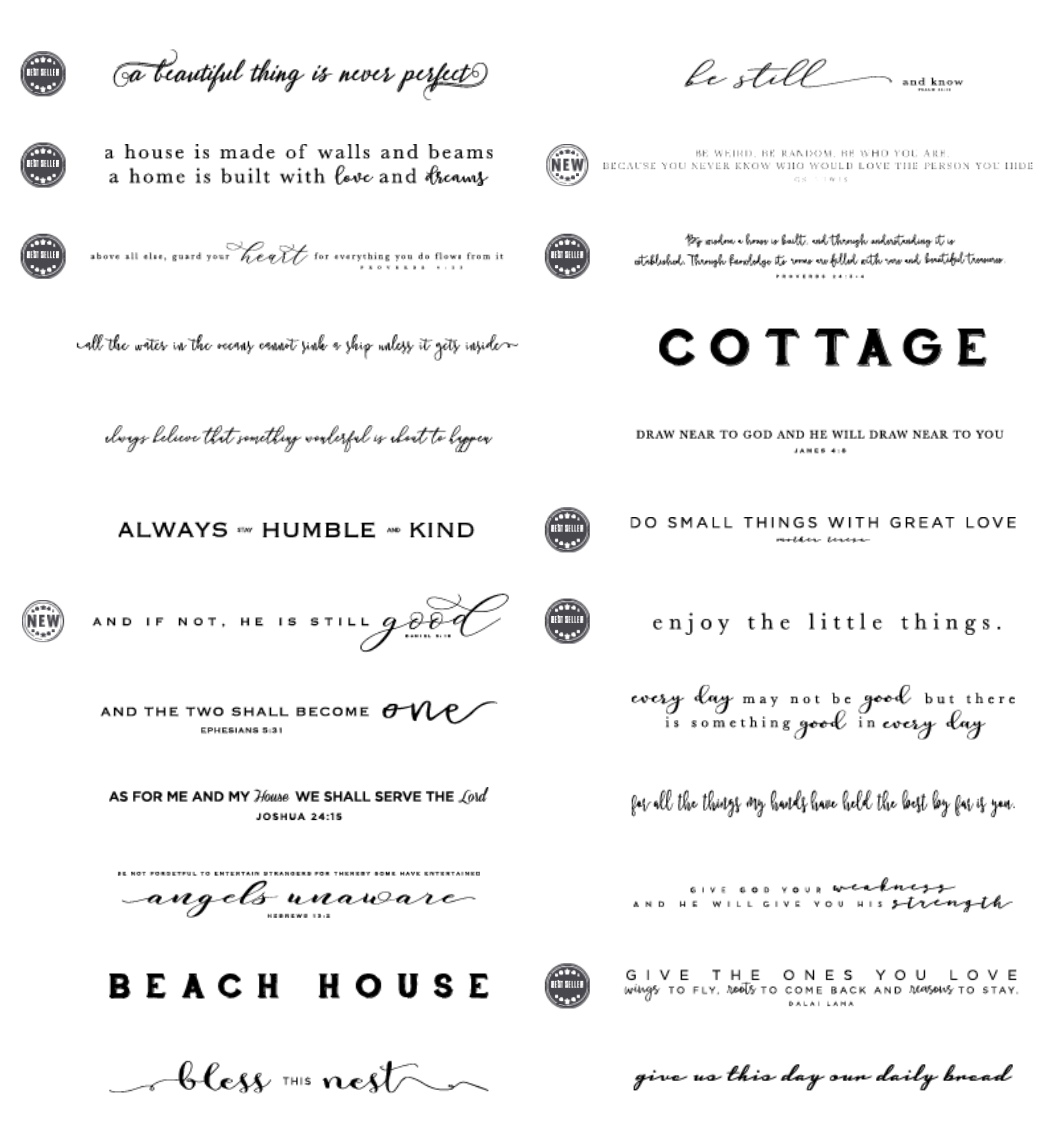 BEST SELLER
a beautiful thing is never perfect
BEST SELLER
a house is made of walls and beams
a home is built with love and dreams
BEST SELLER
above all else, guard your heart for everything you do flows from it
PROVERBS 4:23
all the water in the oceans cannot sink a ship unless it gets inside
always believe that something wonderful is about to happen
ALWAYS STAY HUMBLE AND KIND
NEW
AND IF NOT, HE IS STILL good
DANIEL 3:18
AND THE TWO SHALL BECOME one
EPHESIANS 5:31
AS FOR ME AND MY House WE SHALL SERVE THE Lord
JOSHUA 24:15
BE NOT FORGETFUL TO ENTERTAIN STRANGERS FOR THEREBY SOME HAVE ENTERTAINED
angels unaware
HEBREWS 13:2
BEACH HOUSE
bless THIS nest
be still and know
PSALM 46:10
NEW
BE WEIRD. BE RANDOM. BE WHO YOU ARE.
BECAUSE YOU NEVER KNOW WHO WOULD LOVE THE PERSON YOU HIDE
BEST SELLER
By wisdom a house is built, and through understanding it is
established. Through knowledge its rooms are filled with rare and beautiful treasures.
PROVERBS 24:3-4
COTTAGE
DRAW NEAR TO GOD AND HE WILL DRAW NEAR TO YOU
JAMES 4:8
BEST SELLER
DO SMALL THINGS WITH GREAT LOVE
mother teresa
BEST SELLER
enjoy the little things.
every day may not be good but there
is something good in every day
for all the things my hands have held the best by far is you.
GIVE GOD YOUR weakness
AND HE WILL GIVE YOU HIS strength
BEST SELLER
GIVE THE ONES YOU LOVE
wings TO FLY, roots TO COME BACK AND reasons TO STAY.
DALAI LAMA
give us this day our daily bread